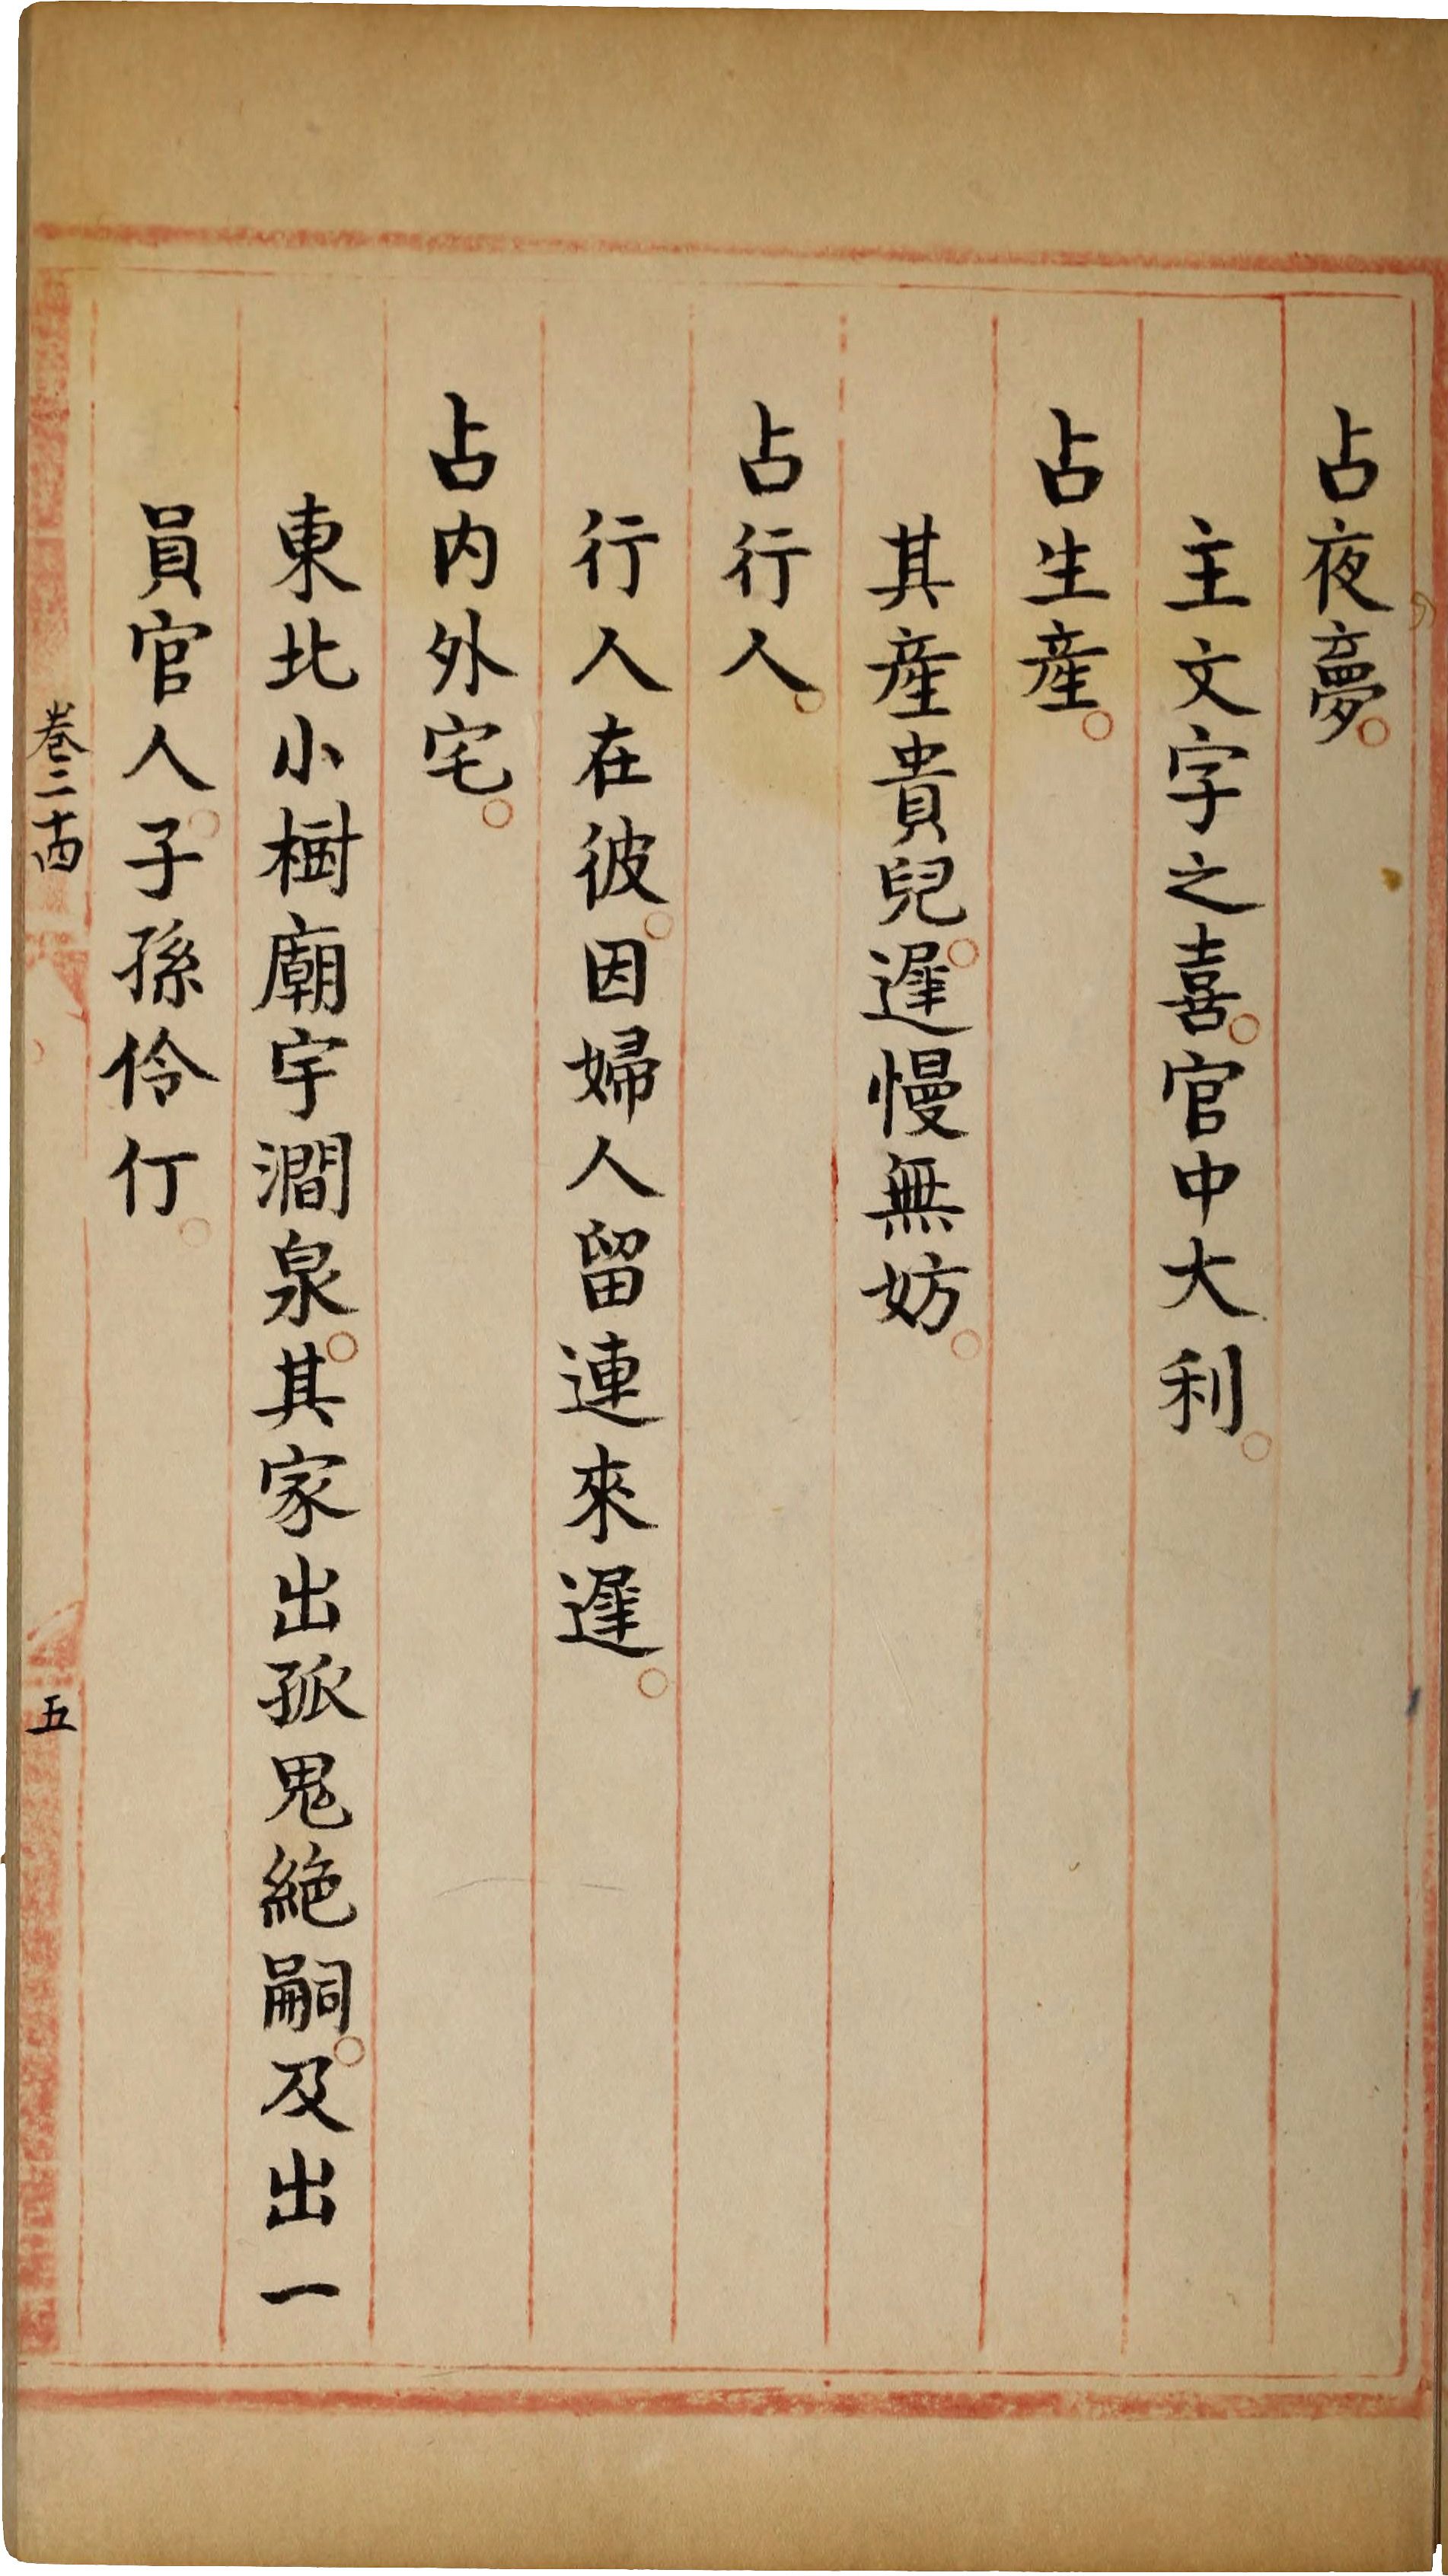 占夜夢。
主文字之喜。官中大利。
占生產。
其產貴兒。遲慢無妨。
占行人。
行人在彼。因婦人留連來遲。
占内外宅。
東北小樹廟宇澗泉。其家出孤鬼絶嗣。及出一
員官人。子孫伶仃。
卷二十四
五